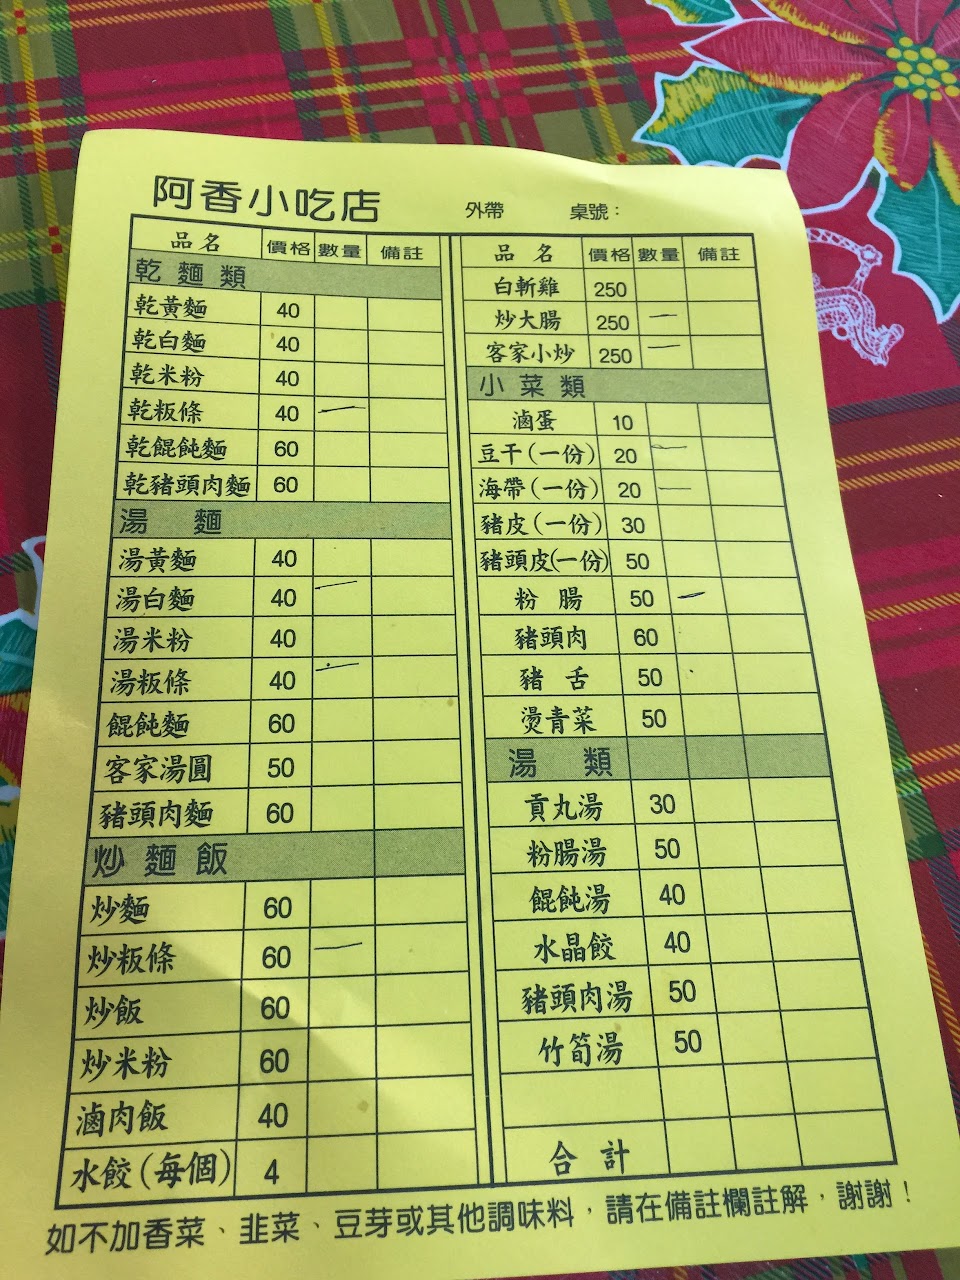 阿香小吃店 外帶 桌號：
品名 價格 數量 備註
乾麵類
乾黃麵 40
乾白麵 40
乾米粉 40
乾粄條 40 一
乾餛飩麵 60
乾豬頭肉麵 60
湯麵
湯黃麵 40
湯白麵 40 一
湯米粉 40
湯粄條 40 一
餛飩麵 60
客家湯圓 50
豬頭肉麵 60
炒麵飯
炒麵 60
炒粄條 60 一
炒飯 60
炒米粉 60
滷肉飯 40
水餃(每個) 4
品名 價格 數量 備註
白斬雞 250
炒大腸 250 一
客家小炒 250 一
小菜類
滷蛋 10
豆干(一份) 20 一
海帶(一份) 20 一
豬皮(一份) 30
豬頭皮(一份) 50
粉腸 50 一
豬頭肉 60
豬舌 50
燙青菜 50
湯類
貢丸湯 30
粉腸湯 50
餛飩湯 40
水晶餃 40
豬頭肉湯 50
竹筍湯 50
合計
如不加香菜、韭菜、豆芽或其他調味料，請在備註欄註解，謝謝！